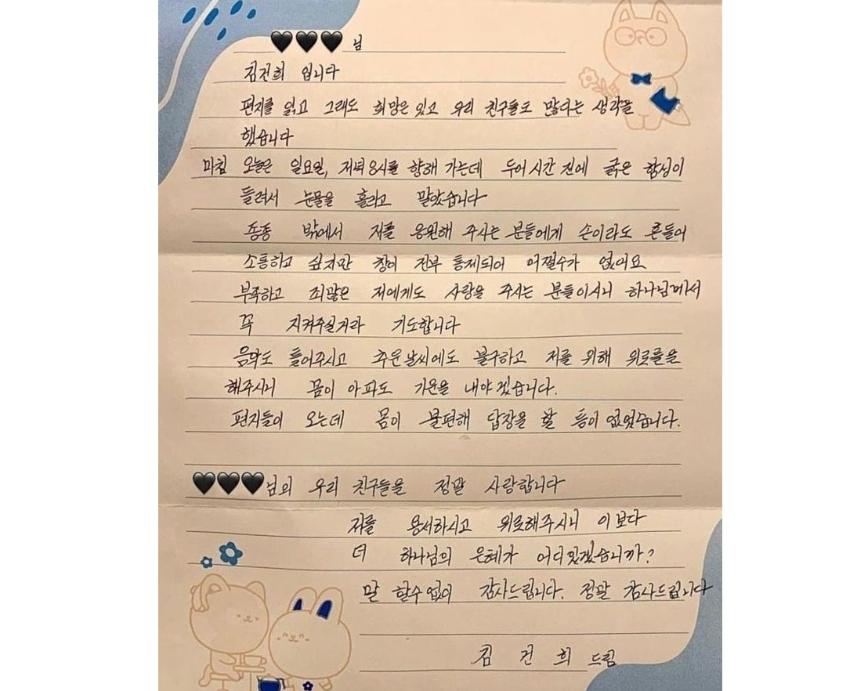 🖤🖤🖤님
김건희 입니다
편지를 읽고 그래도 희망은 있고 우리 친구들도 많다는 생각을
했습니다
마침 오늘은 일요일, 저녁 8시를 향해 가는데 두어시간 전에 굵은 함성이
들려서 눈물을 흘리고 말았습니다
종종 밖에서 저를 응원해 주시는 분들에게 손이라도 흔들어
소통하고 싶지만 창이 전부 통제되어 어쩔수가 없어요
부족하고 죄많은 저에게도 사랑을 주시는 분들이시니 하나님께서
꼭 지켜주실거라 기도합니다
음악도 틀어주시고 추운날씨에도 불구하고 저를 위해 위로를
해주시니 몸이 아파도 기운을 내야겠습니다.
편지들이 오는데 몸이 불편해 답장을 할 틈이 없었습니다.
🖤🖤🖤님의 우리 친구들을 정말 사랑합니다
저를 용서하시고 위로해주시니 이보다
더 하나님의 은혜가 어디있겠습니까?
말 할수없이 감사드립니다. 정말 감사드립니다
김 건 희 드림